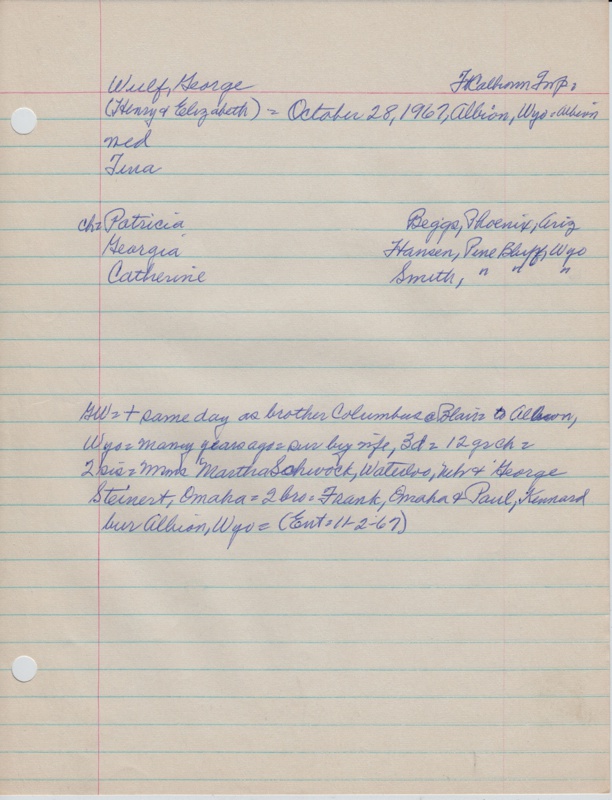 Wulf, George Ft Calhoun Twp =
(Henry & Elizabeth) = October 28, 1967, Albion, Wyo = Albion
med
Tena
ch = Patricia Beggs, Phoenix, Ariz
Georgia Hansen, Pine Bluff, Wyo
Catherine Smith, " " "
GW = + same day as brother Columbus @ Blair = to Albion,
Wyo = many years ago = sur by wife, 3d = 12 gr ch =
2 sis = Mmes Martha Schwock, Waterloo, Nebr & George
Steinert, Omaha = 2 bro = Frank, Omaha & Paul, Kennard
bur Albion, Wyo = (Ent = 11-2-67)